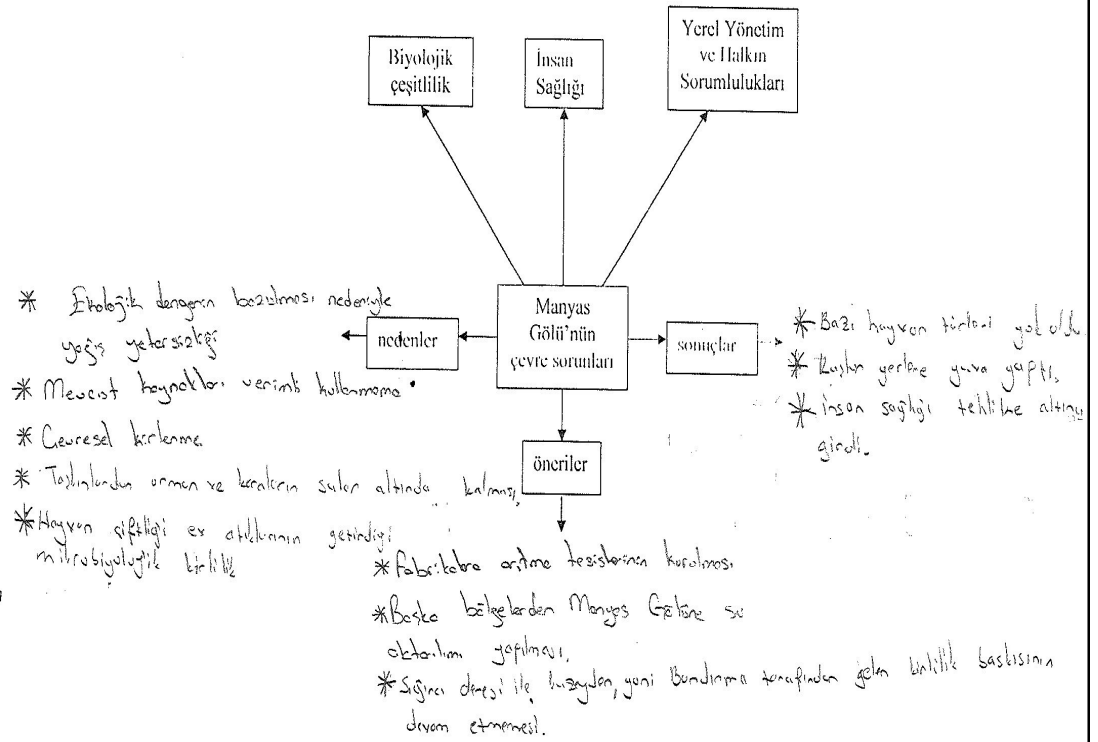 Biyolojik
çeşitlilik
İnsan
Sağlığı
Yerel Yönetim
ve Halkın
Sorumlulukları
Manyas
Gölü'nün
çevre sorunları
nedenler
* Ekolojik dengenin bozulması nedeniyle
yağış yetersizliği
* Mevcut kaynakları verimli kullanmama
* Çevresel kirlenme
* Taşkınlardan orman ve karaların sular altında kalması,
* Hayvan çiftliği ev atıklarının getirdiği
mikrobiyolojik kirlilik
sonuçlar
* Bazı hayvan türleri yok oldu
* Kuşlar yerlere yuva yaptı,
* İnsan sağlığı tehlike altına
girdi.
öneriler
* Fabrikalara arıtma tesislerinin kurulması
* Başka bölgelerden Manyas Gölüne su
aktarılımı yapılması,
* Sığırcı deresi ile kuzeyden, yani Bandırma tarafından gelen kirlilik baskısının
devam etmemesi.